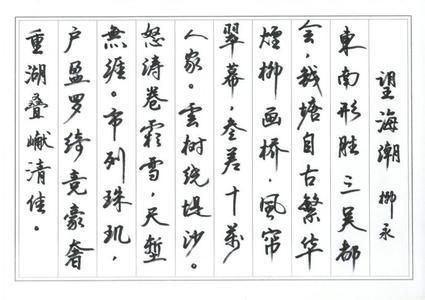 望海潮 柳永
東南形胜三吴都
会,钱塘自古繁华
煙柳画桥,風帘
翠幕,参差十萬
人家。雲树绕堤沙。
怒涛卷霜雪,天堑
無涯。市列珠玑,
户盈罗绮竞豪奢
重湖叠巘清佳。